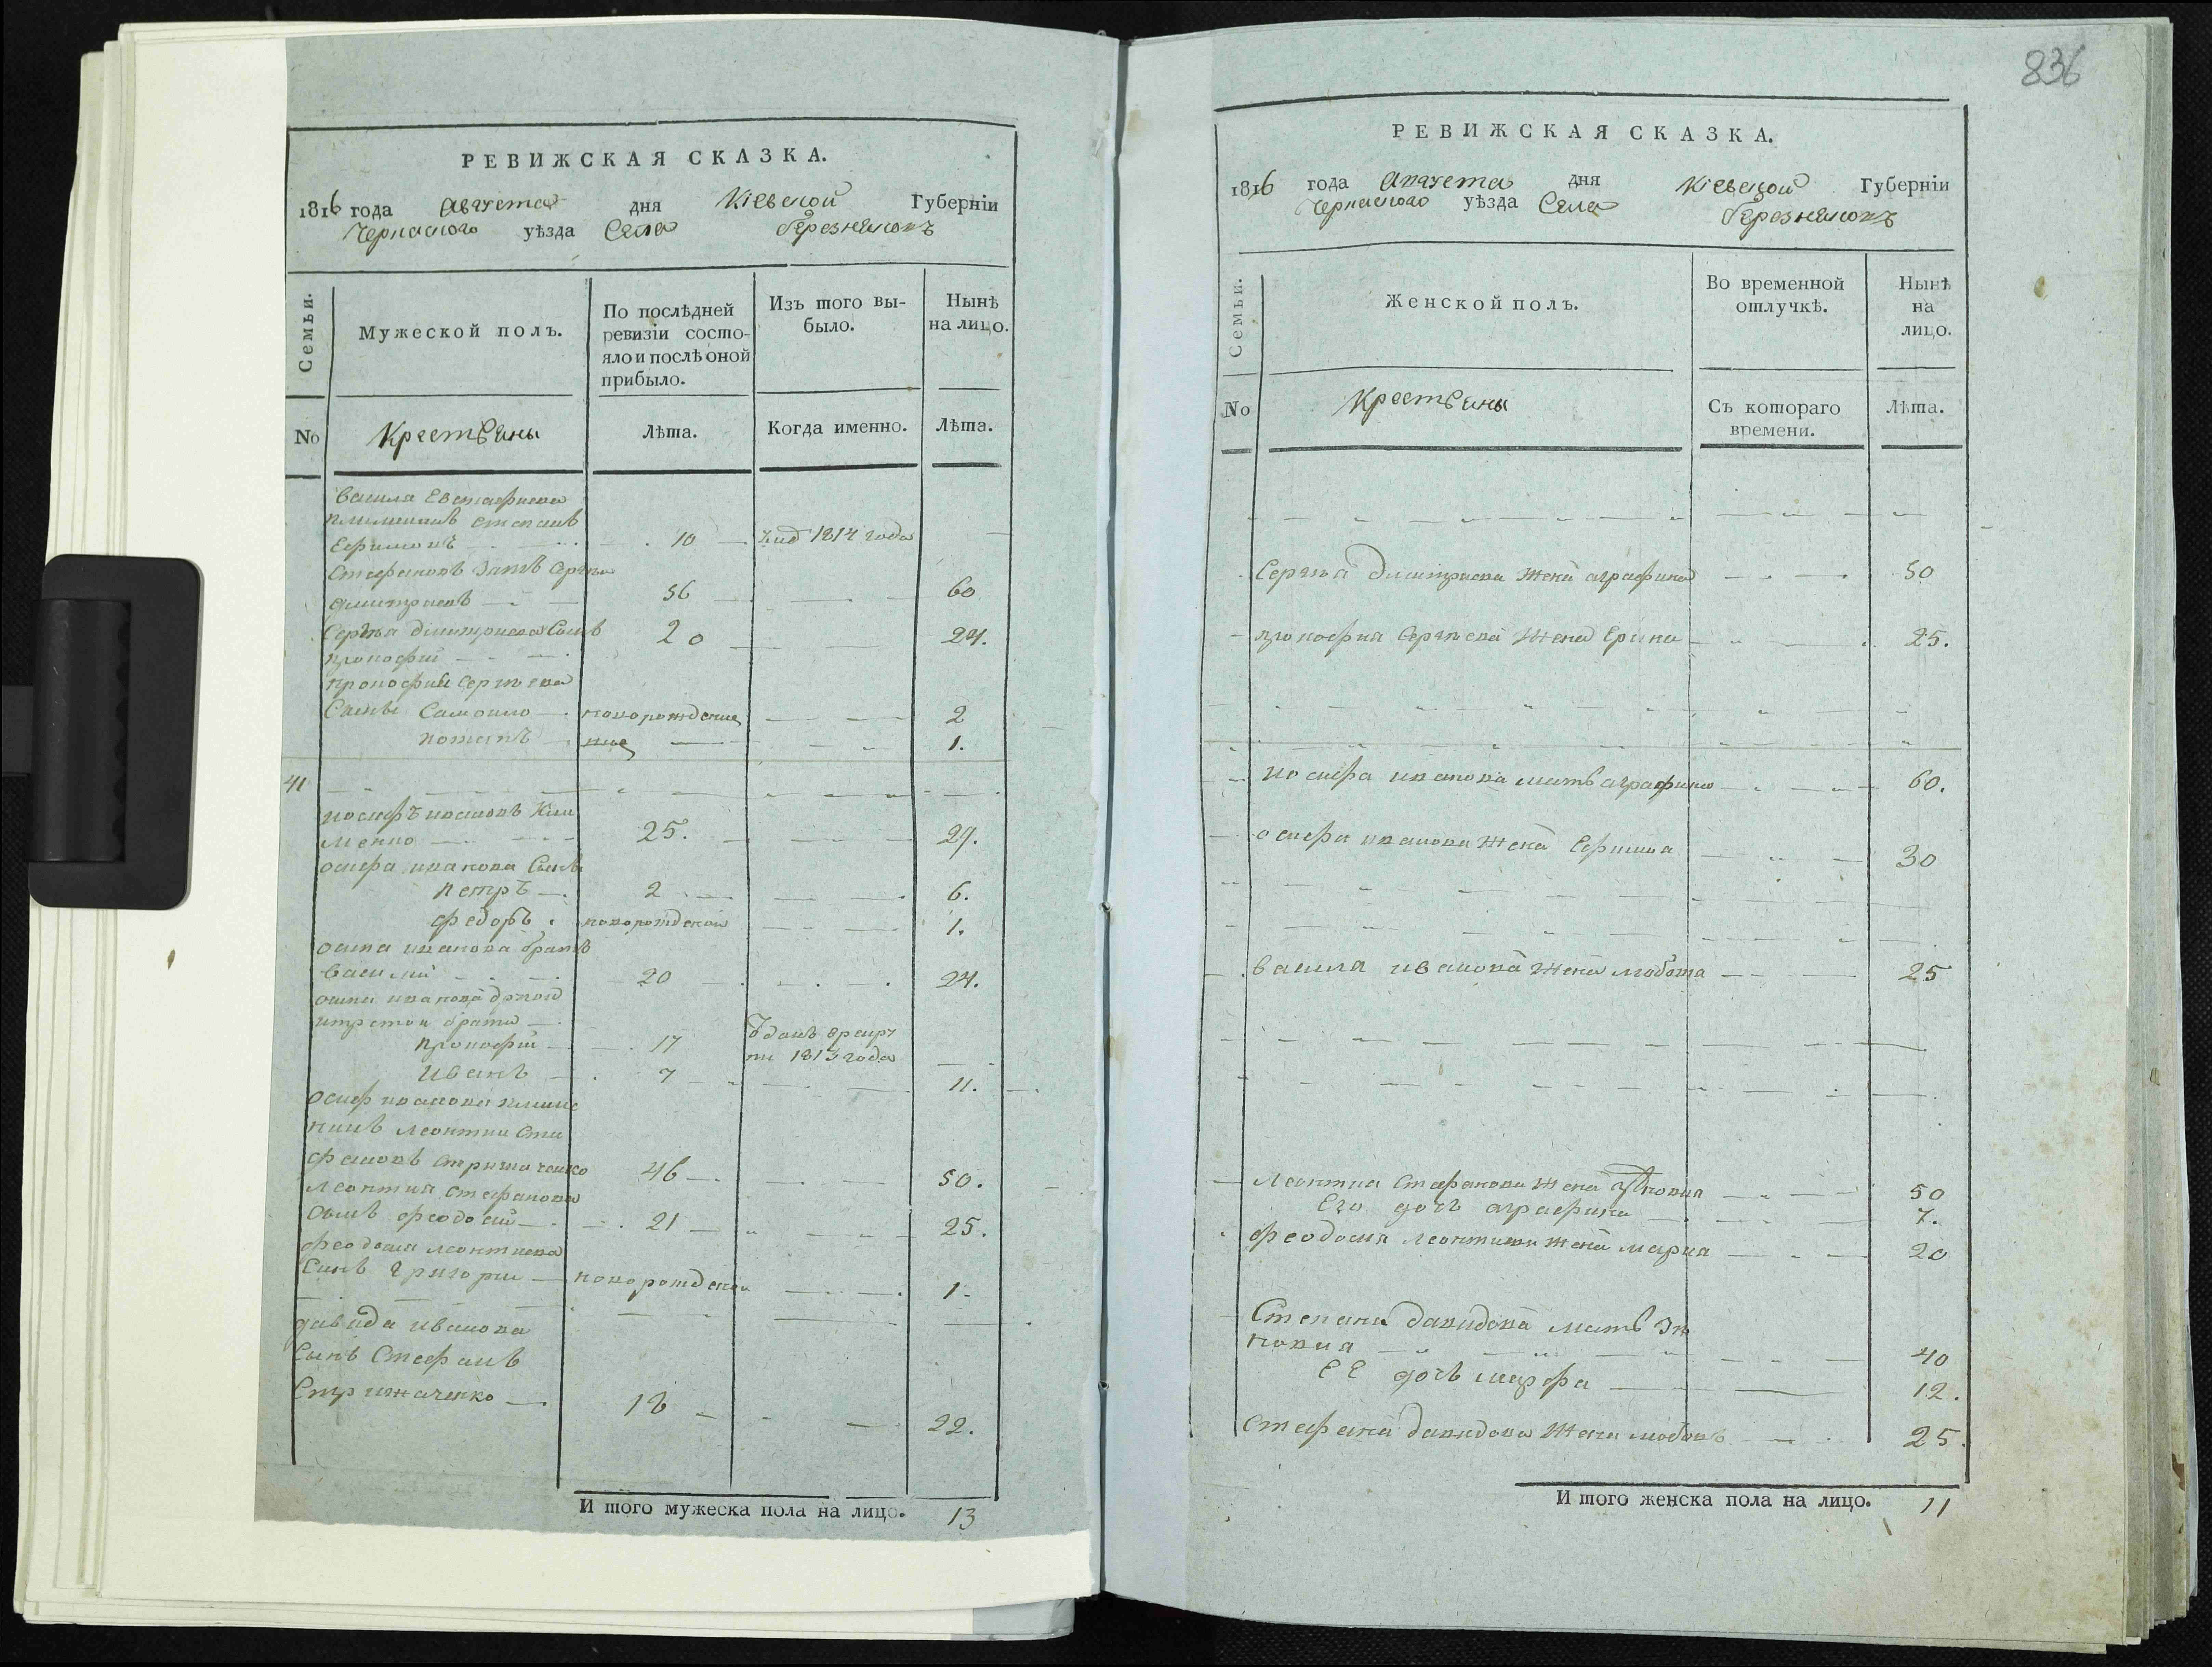 836
РЕВИЖСКАЯ СКАЗКА.
1816 года Августа дня Кіевской Губерніи
Черкаского уѣзда Села Березняковъ
Семьи.
Мужеской полъ.
По послѣдней
ревизіи состо-
яло и послѣ оной
прибыло.
Изъ того вы-
было.
Нынѣ
на лицо.
No
Крестьяны
Лѣта.
Когда именно.
Лѣта.
Василя Евстафиева
племинникъ степанъ
Ефимовъ 10 1814 года
Стефановъ зять Сергѣи
дмитриевъ 56 60
Сергѣя дмитриева Сынъ 20 24.
прокофий
прокофия Сергѣева
Сыны Самоило новорожденые 2
потапъ 1.
41
иосифъ ивановъ Кли
менко 25. 29.
осифа иванова Сынъ
петръ 2 6.
федоръ новорожденой 1.
осипа иванова братъ
василий 20 24.
осипа иванова другой
итретои братя
прокофий 17 Вданъ врекру
ти 1813 года
Иванъ 7 11.
осиф иванова племе
никъ леонтии Сте
фановъ стрижаченко 46 50.
леонтия стефанова
сынъ феодосий 21 25.
феодосия леонтиева
Синъ григории новорожденой 1.
давида иванова
Сынъ Стефанъ
Стрижаченко 18 22.
И того мужеска пола на лицо. 13
РЕВИЖСКАЯ СКАЗКА.
1816 года Августа дня Кіевской Губерніи
Черкаского уѣзда Села Березняковъ
Семьи.
Женской полъ.
Во временной
отлучкѣ.
Нынѣ
на
лицо.
No
Крестьяны
Съ котораго
времени.
Лѣта.
Сергѣя дмитриева жена аграфина 50
прокофия Сергѣева жена Ерина 25.
иосифа иванова мать аграфина 60.
осифа иванова жена Ефимия 30
василя иванова жена 25
леонтия стефанова жена 50
Его дочь аграфина 7.
феодосия леонтиева жена мария 20
Степана давидова мать зѣ
новия 40
ЕЕ дочь марфа 12.
стефана давидова жена любовь 25.
И того женска пола на лицо. 11